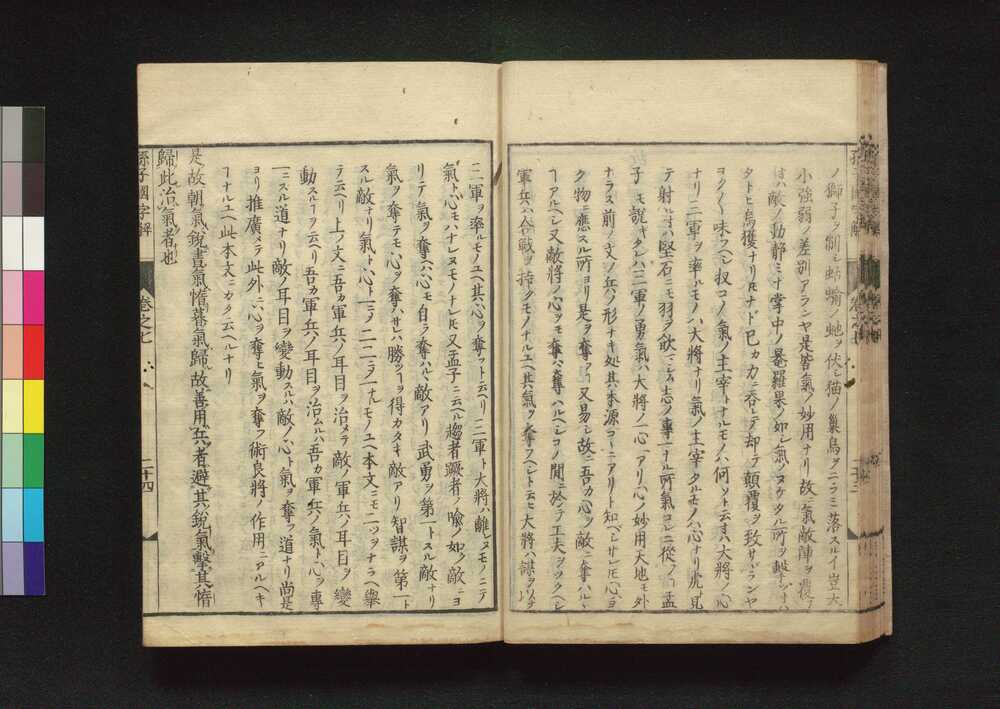 ノ獅子ヲ制シ蛞蝓ノ虵ヲ伏シ猫ノ巣烏ヲニラミ落スルイ豈大
小強弱ノ差別アランヤ是皆氣ノ妙用ナリ故ニ氣敵陣ヲ覆フ
敵ノ動靜ミナ掌中ノ菴羅果ノ如シ氣ノヌケタル所ヲ撃
タトヒ烏獲ナリトモナド已カ力ニ呑レテ却テ顛覆ヲ致サヾランヤ
ヨク〱味フヘシ扨コノ氣ノ主宰トナルモノハ何ソト云ニ大將ノ心
ナリ三軍ヲ率ルモノハ大將ナリ氣ノ主宰タルモノハ心ナリ虎ト見
テ射ル時ハ堅石ニモ羽ヲ飲ニシム志ノ專一ナル所氣コレニ從フ孟
子モ説キタレハ三軍ノ勇氣ハ大將ノ一心ニアリ心ノ妙用天地モ外
ナラス前ノ文ノ兵ノ形ナキ処其本源コヽニアリト知ヘシサレトモ心ヨ
ク物ニ應スル所ヨリ是ヲ奪フヿ又易シ故ニ吾カ心ヲ敵ニ奪ハルヽ
ヿアルヘシ又敵將ノ心ヲモ奪ハヽ奪ハルヘシコノ間ニ於テ工夫ヲツクヘシ
軍兵ハ合戰ヲ持クモノナルユヘ其氣ヲ奪フヘシト云ヒ大將ハ謀ヲ以テ
三軍ヲ率ルモノユヘ其心ヲ奪フト云ヘリ三軍ト大將ハ離レヌモノニテ
氣ト心モハナレヌモノナレトモ又孟子ニ云ヘル趨者蹶者ノ喩ノ如ク敵ニヨ
リテ氣ヲ奪ヘハ心モ自ラ奪ハルヽ敵アリ武勇ヲ第一トスル敵ナリ
氣ヲ奪テモ心ヲ奪ハサレハ勝ヿヲ得カタキ敵アリ智謀ヲ第一ト
スル敵ナリ氣ト心ト一ニメ二二ニメ一ナルモノユヘ本文ニモ二ツヲナラヘ擧
テ云ヘリ上ノ文ニ吾カ軍兵ノ耳目ヲ治メテ敵ノ軍兵ノ耳目ヲ變
動スルヿヲ云ヘリ吾カ軍兵ノ耳目ヲ治ムルハ吾カ軍兵ノ氣ト心ヲ專
一ニスル道ナリ敵ノ耳目ヲ變動スルハ敵ノ心ト氣ヲ奪フ道ナリ尚是
ヨリ推廣メテ此外ニ心ヲ奪ヒ氣ヲ奪フ術良將ノ作用ニアルヘキ
ヿナルユヘ此本文ニカク云ヘルナリ
是故朝氣鋭晝氣惰暮氣歸故善用兵者避其鋭氣擊其惰
歸此治氣者也
孫子國字解
卷之七
二十四